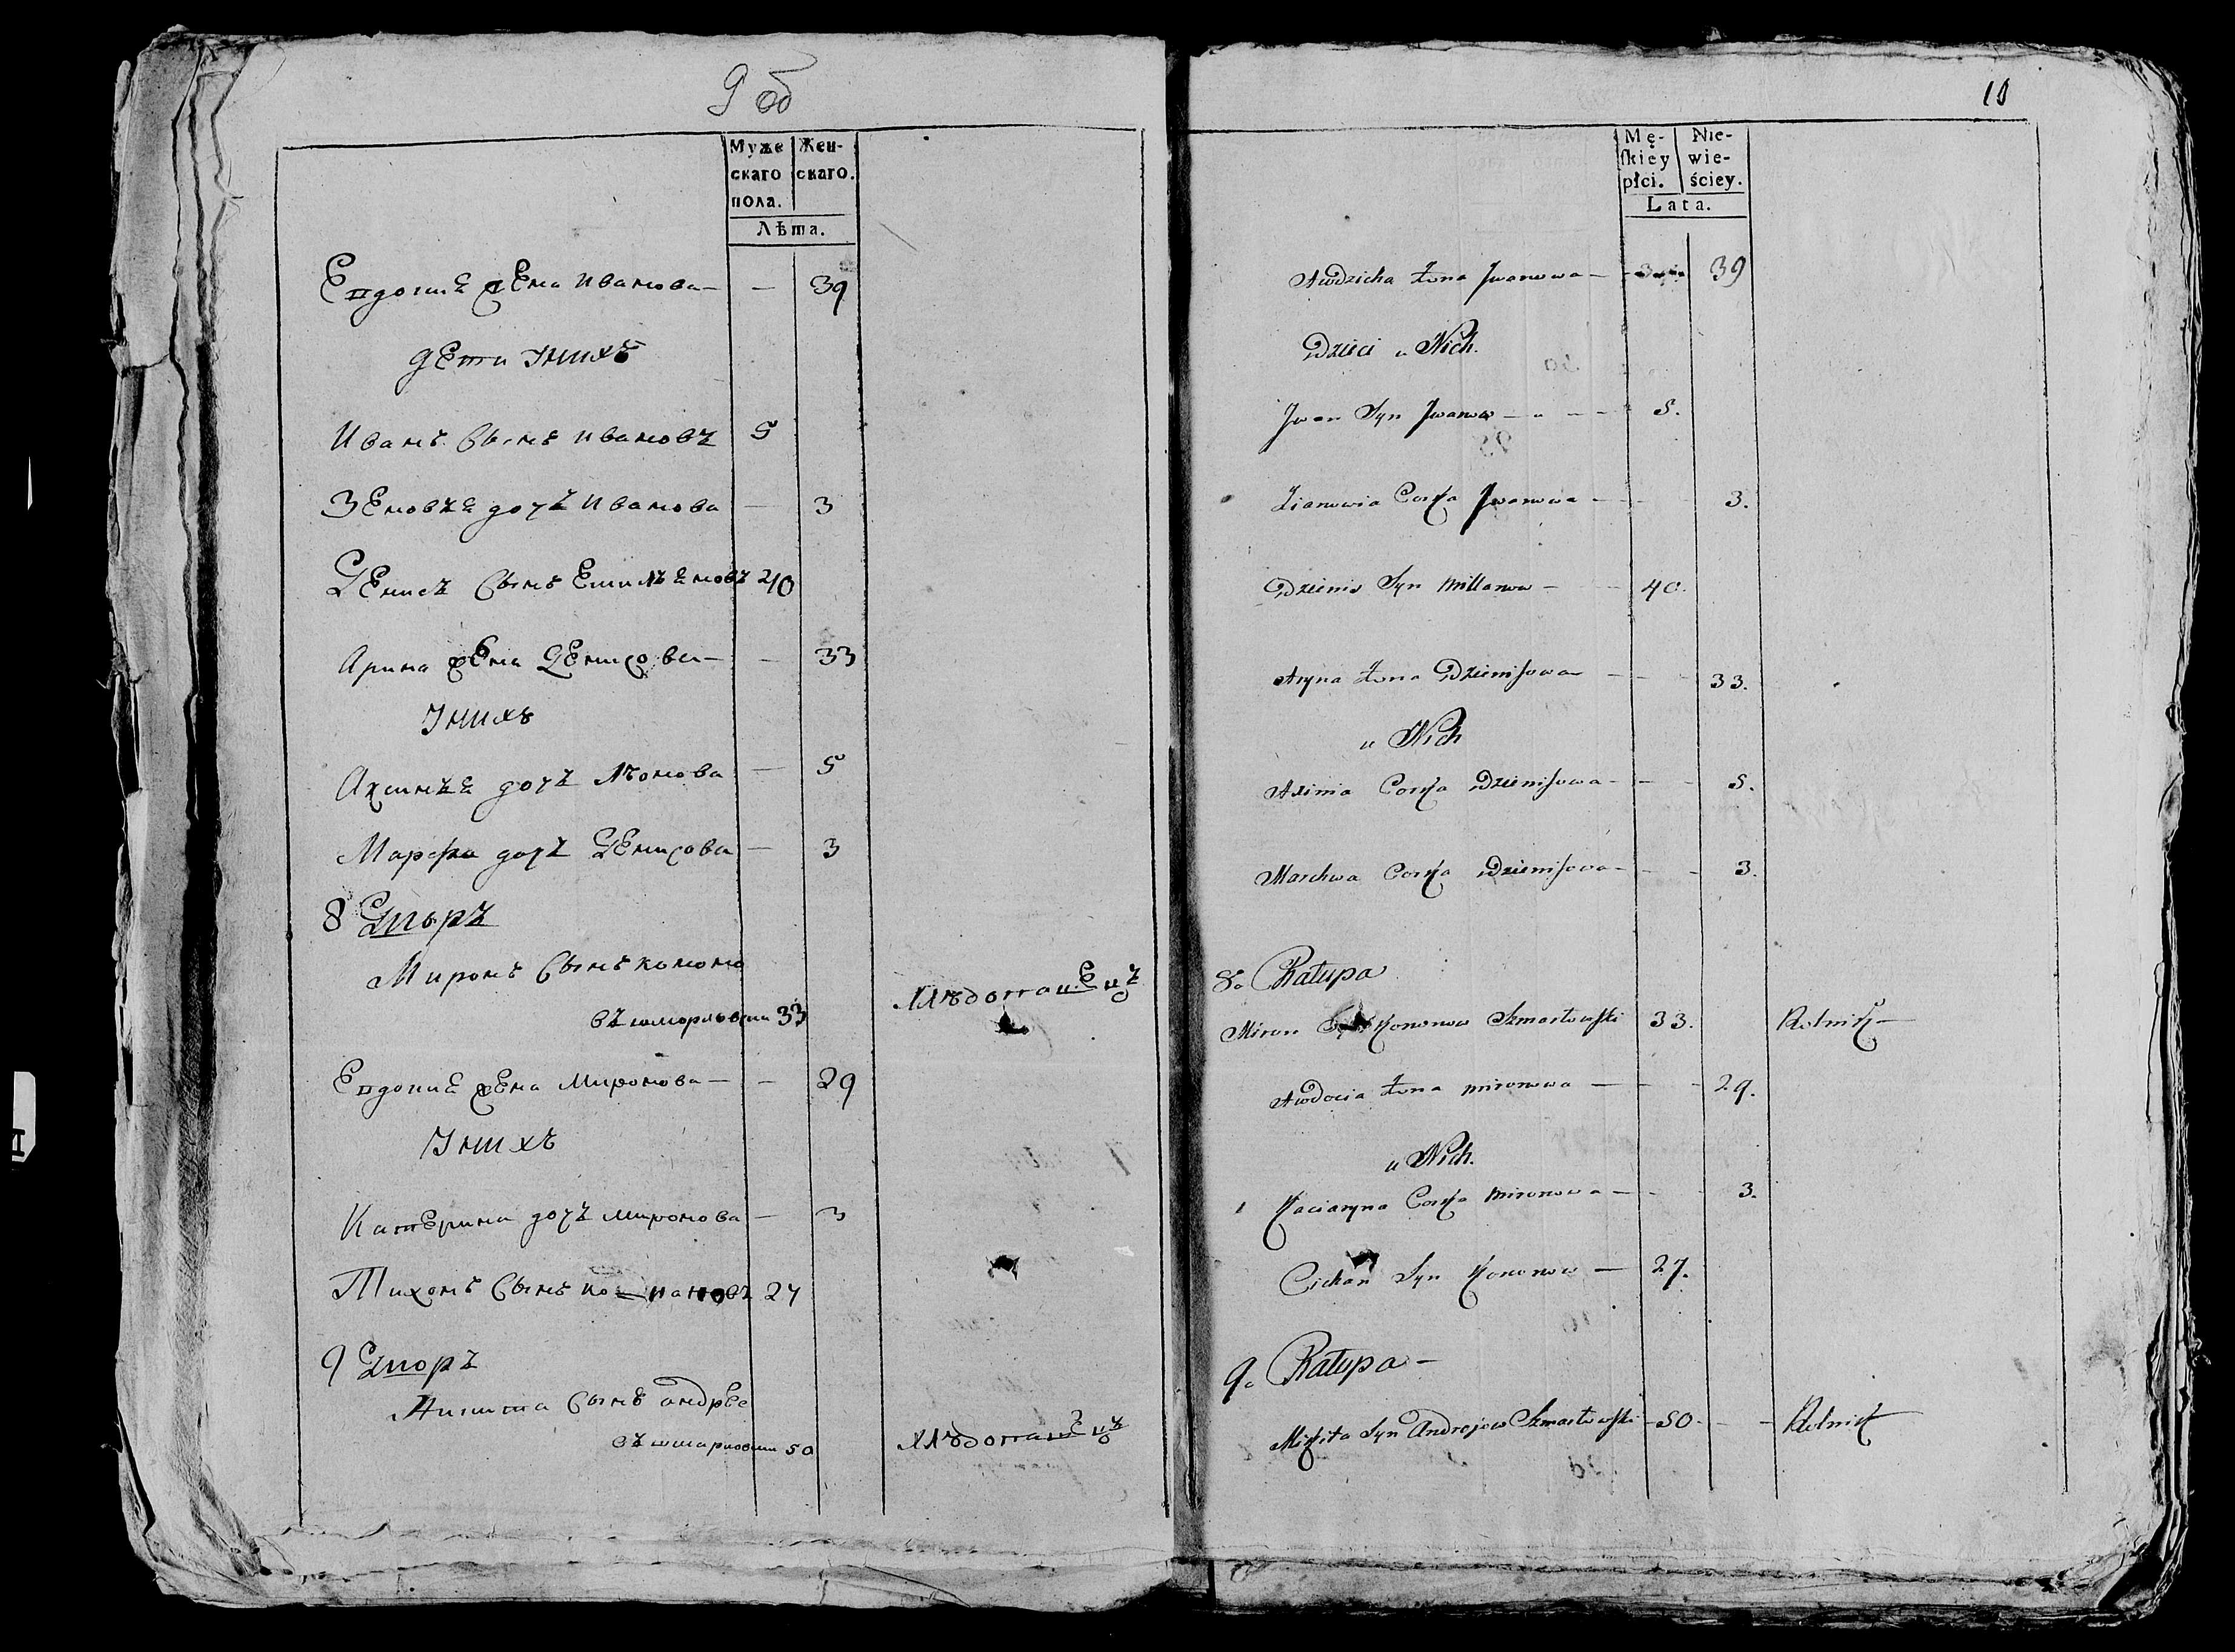 9 об
Муже Жен-
скаго скаго.
пола.
Лѣта.
Евдокиѣ жена иванова — — 39
дети унихъ
Иванъ сынъ ивановъ 5
Зеновьѣ дочь иванова — 3
Денисъ сынъ Емильѣновъ 40
Арина жена Денисова — — 33
унихъ
Аксиньѣ дочь — 5
Марфа дочь Денисова — 3
8 Дворъ
Миронъ сынъ кононо
въ шморловски 33 хлѣбопашецъ
Евдокиѣ жена Миронова — — 29
унихъ
Катерина дочь миронова — 3
Тихонъ сынъ 27
9 Дворъ
Никита сынъ андрѣе
въ шмарловски 50 хлѣбопашецъ
10
Mę- Nie-
ſkiey wie-
płci. ściey.
Lata.
Awdzicha żona Jwanowa — 39
Dzieci u Nich.
Jwan Syn Jwanow — 5.
Zianowia Corka Jwanowa — 3.
Dzienis Syn Millanow — 40.
Aryna żona Dzienisowa — 33.
u Nich
Axinia Corka Dzienisowa — 5.
Marchwa Corka Dzienisowa — 3.
8. Chałupa
Miron Syn Kononow Szmarłowski 33. Rolnik —
Awdocia żona mironowa — 29.
u Nich.
Kaciaryna Corka mironowa — 3.
Cichan Syn Kononow — 27.
9. Chałupa —
Mikita Syn Andrejow Szmarłowski 50 — Rolnik